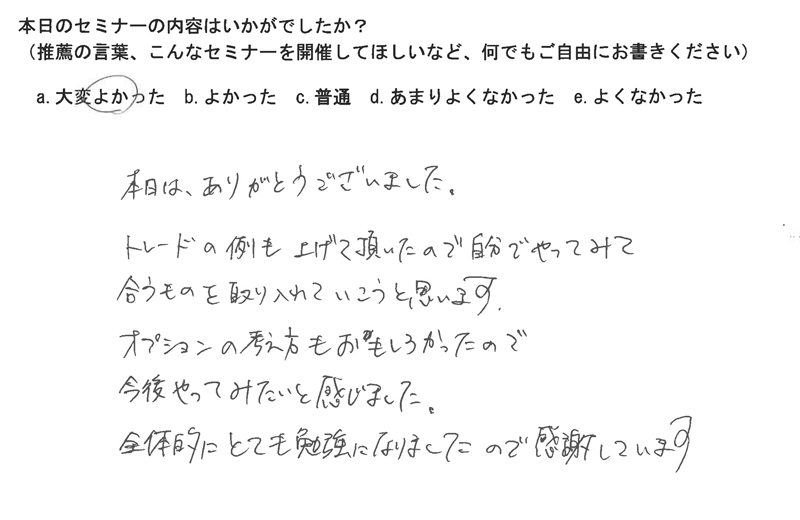 本日のセミナーの内容はいかがでしたか？
（推薦の言葉、こんなセミナーを開催してほしいなど、何でもご自由にお書きください）
a. 大変よかった　b. よかった　c. 普通　d. あまりよくなかった　e. よくなかった
本日は、ありがとうございました。
トレードの例も上げて頂いたので自分でやってみて
合うものを取り入れていこうと思います。
オプションの考え方もおもしろかったので
今後やってみたいと感じました。
全体的にとても勉強になりましたので感謝しています